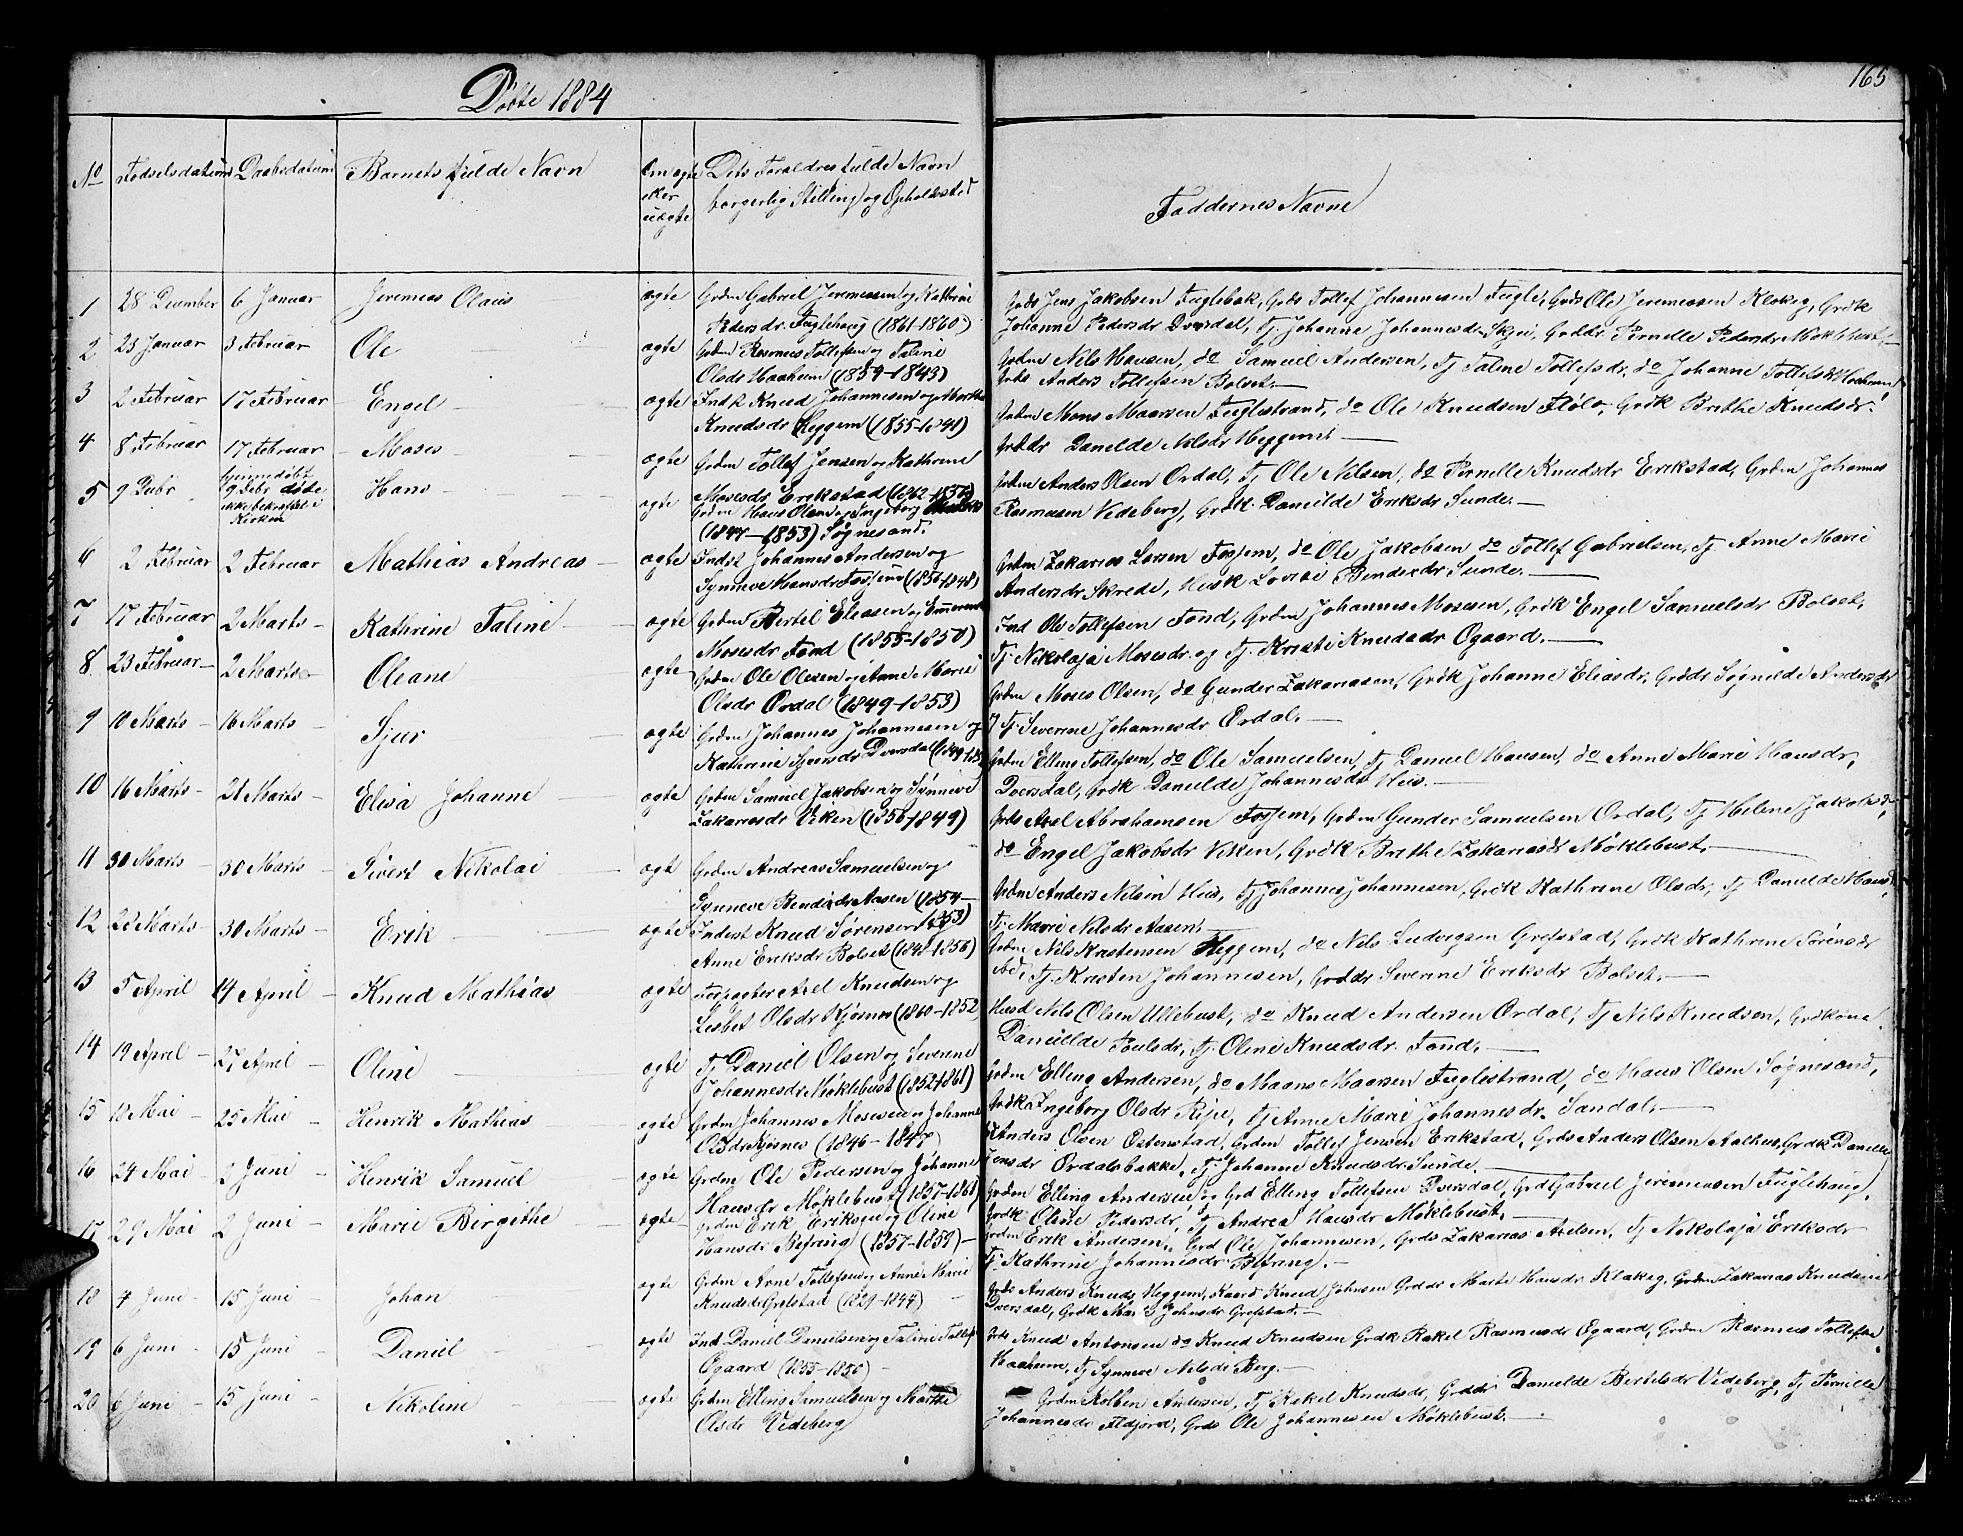 165
Døbte 1884
No Fødselsdatum Daabsdatum Barnets fulde Navn Om ægte eller uægte Dets Forældres fulde Navn borgerlig Stilling og Opholdssted
Faddernes Navne
1 28 December 6 Januar Jeremias Olaus ægte Grdm Gabriel Jeremiassen og Kathrine
Pedersdr. Fuglehaug (1861-1860)
Grds Jens Jakobsen Fuglebak, Grds Tollef Johannesen Fugle, Grds Ole Jeremiassen Klakeg, Grdk
Johanne Pedersdr Dvergsdal, Tj. Johanne Johannesdr Skjei, Grddr Pernille Pedersdr Møklebust,
2 23 Januar 3 Februar Ole ægte Grdm Rasmus Tollefsen og Taline
Olsdr Haaheim (1859-1843)
Grdm Nils Hansen, do Samuel Andersen, Tj Taline Tollefsdr, do Johanne Tollefsdr Haaheim
Grds Anders Tollefsen Bolset.
3 2 Februar 17 Februar Engel ægte Inds Knud Johannesen og Marthe
Knudsdr Heggem (1855-1848)
Grdm Mons Maarsen Fuglestrand, do Ole Knudsen Flølo, Grdk Brithe Knudsdr.
Grddr Danielde Nilsdr Heggem
4 8 Februar 17 Februar Moses ægte Grdm Tollef Jensen og Kathrine
Mosesdr Erikstad (1862-1856)
Grdm Anders Olsen Ordal, Tj Ole Nilsen, do Pernille Knudsdr Erikstad, Grdm Johannes
Rasmusen Vedeberg, Grdk Danielde Eriksdr Sunde.
5 9 Febr hjemmedøbt 9 Febr døde ikke bekræftet i Kirken Hans ægte Grdm Hans Olsen og Ingeborg
(1847-1853) Søgnesand.
6 2 Februar 2 Februar Mathias Andreas ægte Inds Johannes Andersen og
Synneve Hansdr Fossem (1856-1848)
Grdm Zakarias Larsen Fossem, do Ole Jakobsen do Tollef Gabrielsen, Tj Anne Marie
Andersdr Skrede, Husk Lovise Bendixdr Sunde.
7 17 Februar 2 Marts Kathrine Taline ægte Grdm Bertel Eliasen og Emerentse
Mosesdr Fond (1855-1850)
Ind Ole Tollefsen Fond, Grdm Johannes Mosesen, Grdk Engel Samuelsdr Bolset,
Tj. Nikolaja Mosesdr og Tj. Kristi Knudsdr Øgaard.
8 23 Februar 2 Marts Oleane ægte Grdm Ole Olesen og Anne Marie
Olsdr Ordal (1849-1853)
Grdm Moses Olsen, do Gunder Zakariasen, Grdk Johanne Eliasdr, Grddr Søgnilde Andersdr
Tj. Severine Johannesdr Ordal.
9 10 Marts 16 Marts Sjur ægte Grdm Johannes Johannesen og
Kathrine Sjursdr Dvergsdal
Grdm Elling Tollefsen, do Ole Samuelsen, Tj Daniel Hansen, do Anne Marie Hansdr,
Dvergsdal, Grdk Danielde Johannesdr Hus.
10 16 Marts 21 Marts Elisa Johanne ægte Grdm Samuel Jakobsen og Synneve
Zakariasdr Viken (1856-1849)
Grds Axel Abrahamsen Fossem, Grdm Gunder Samuelsen Ordal, Tj Helene Jakobsdr,
do Engel Jakobsdr Viken, Grdk Brithe Zakariasdr Møklebust.
11 30 Marts 30 Marts Sivert Nikolai ægt Grdm Andreas Samuelsen og
Synneve Bendixdr Aasen (1854-1853)
Grdm Anders Nilsen Hus, Tj Johannes Johannesen, Grdk Kathrine Olsdr, Tj Danielde Hansdr,
Tj. Marie Nilsdr Aasen.
12 22 Marts 30 Marts Erik ægte Inderst Knud Sørensen og
Anne Eriksdr Bolset (1841-1856)
Grdm Nils Kristensen Heggem, do Nils Ludvigsen Grefstad, Grdk Kathrine Sørensdr
ibd, Tj. Kristen Johannesen, Grddr Severine Eriksdr Bolset.
13 5 April 14 April Knud Mathias ægte Forpagter Axel Knudsen og
Lisbet Olsdr Kjøsnes (1860-1852)
Husd Nils Olsen Ullebust, do Knud Andersen Ordal, Tj Nils Knudsen, Grdkone
Danielde Poulsdr, Tj. Oline Knudsdr Fond.
14 19 April 27 April Oline ægte Tj Daniel Olsen og Severine
Johannesdr Møklebust (1852-1861)
Grdm Elling Andersen, do Maans Maarsen Fuglestrand, do Hans Olsen Søgnesand,
Grdk Ingeborg Olsdr Ripe, Tj Anne Marie Johannesdr Sandal.
15 18 Mai 25 Mai Henrik Mathias ægte Grdm Johannes Mosesen og Johanne
Olsdr Kjøsnes (1846-1847)
Anders Olsen Østenstad, Grdm Tollef Jensen Erikstad, Grds Anders Olsen Aalhus, Grdk Danielde
Jensdr Ordalsbakke, Tj. Johanne Knudsdr Sunde.
16 24 Mai 2 Juni Henrik Samuel ægte Grdm Ole Pedersen og Johanne
Hansdr Møklebust (1857-1861)
Grdm Elling Andersen og Grd Elling Tollefsen Dvergsdal, Grd Gabriel Jeremiassen Fuglehaug,
Grdk Oline Pedersdr, Tj Andrea Hansdr Møklebust.
17 29 Mai 2 Juni Marie Birgithe ægte Grdm Erik Eriksen og Oline
Hansdr Befring (1857-1859)
Grdm Erik Andersen, Grd Ole Johannesen, Grds Zakarias Axelsen, Tj Nikolaja Eriksdr
Tj. Kathrine Johannesdr Befring.
18 4 Juni 15 Juni Johan ægte Grdm Arne Tollefsen og Anne Marie
Knudsdr Grefstad (1829-1844)
Grds Anders Knuds Heggem, Kaard Knud Johnsen Grddr Marte Hansdr Klakeg, Grdm Zakarias Knudsen
Dvergsdal, Grdk Mari Johnsdr Grefstad.
19 6 Juni 15 Juni Daniel ægte Ind Daniel Danielsen og Taline Tollefsdr
Øgaard (1855-1856)
Grds Knud Antonsen do Knud Knudsen Grdk Rakel Rasmusdr Øgaard, Grdm Rasmus Tollefsen
Haaheim, Tj Synneve Nilsdr Berg.
20 6 Juni 15 Juni Nikoline ægte Grdm Elling Samuelsen og Marthe
Olsdr Vedeberg
Grdm Kolben Andersen, Tj Rakel Knudsdr, Grddr Danielde Bertelsdr Vedeberg, Tj Pernille
Johannesdr Aldjord, Grds Ole Johannesen Møklebust.